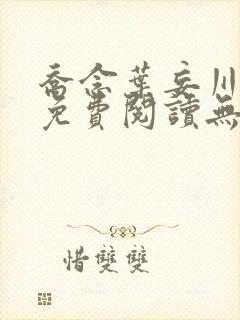 喬念葉妄川
免費閱讀無
惜雙雙